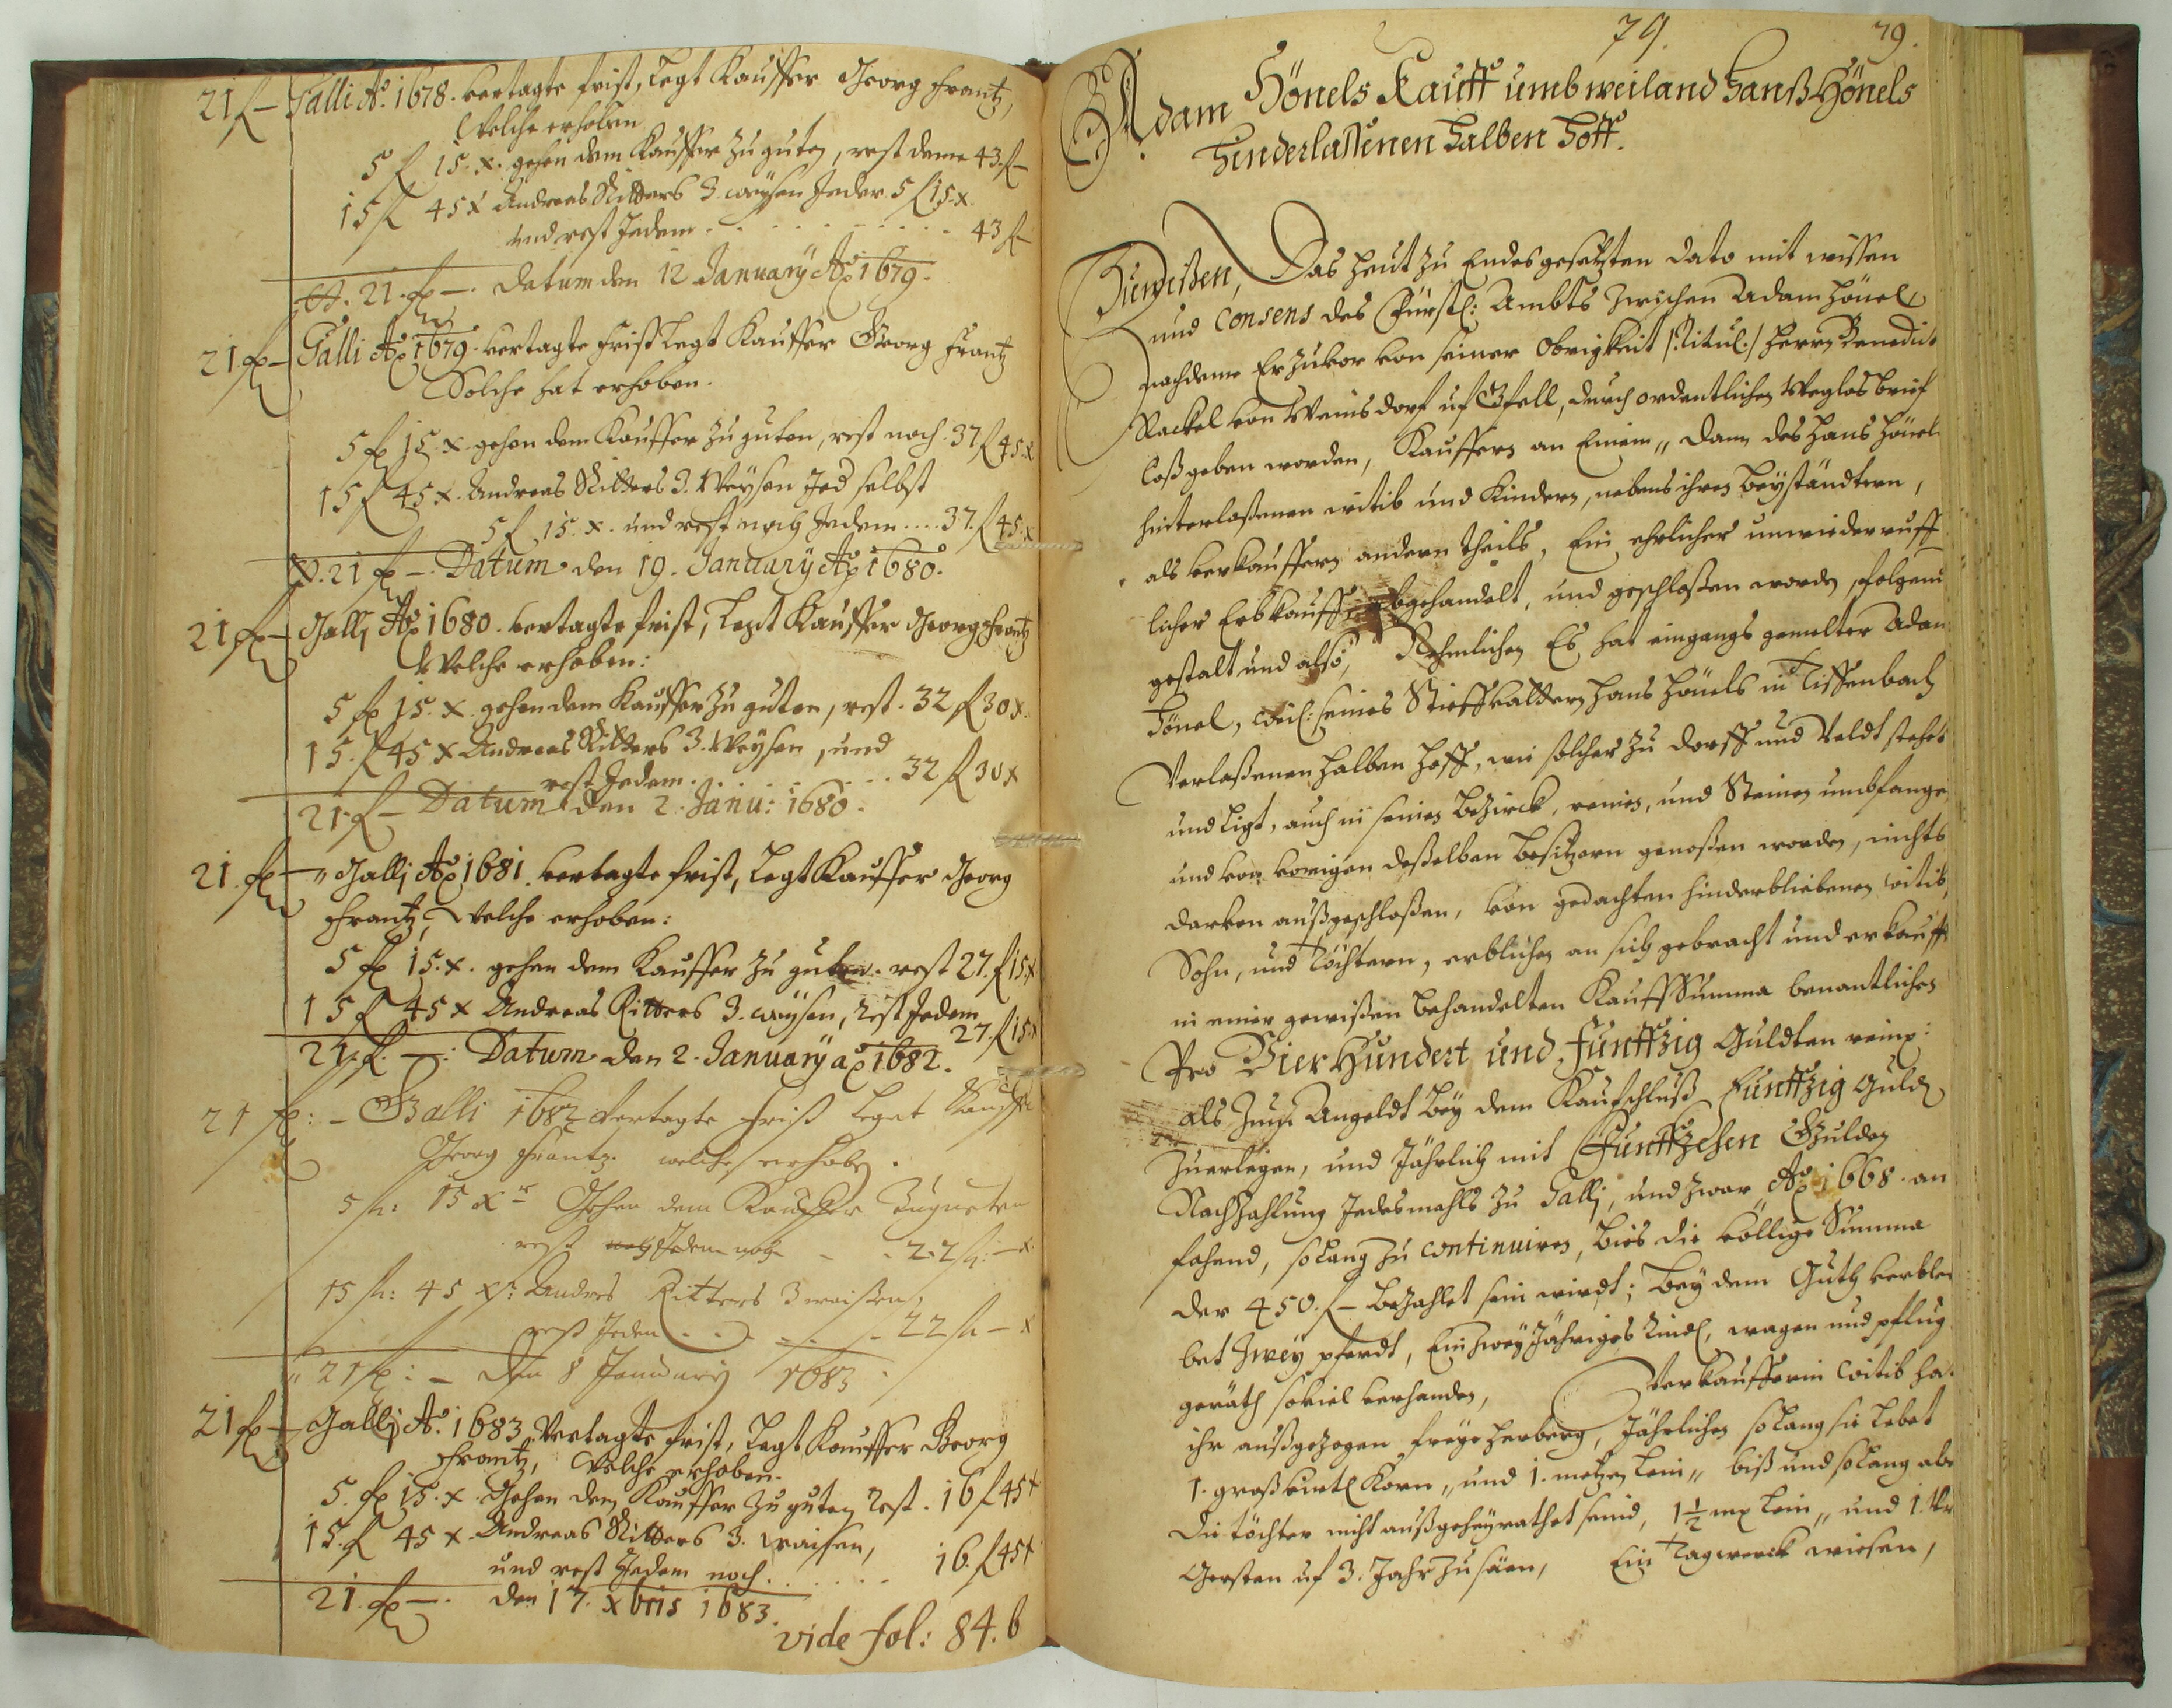 21 f — Galli Ao. 1678. vertagte frist, Legt Kauffer Georg Frantz,
Welche erhoben
5 f 15. x. gehen dem Kauffer zu guten, rest deme 43. f —
15 f 45 x Andreas Ritters 3. waÿsen Jeder 5 f 15. x.
und rest Jedem . . . . . . . . . 43 f —
21. f —. Datum den 12 Januarÿ Ao 1679.
21. f — Galli Ao 1679. vertagte Frist Legt Kauffer Georg Frantz
Solche hat erhoben.
5 f 15. x. gehen dem Kauffer zu guten, rest noch. 37 f 45. x
15 f 45 x. Andreas Ritters 3. Weÿsen Jed selbst
5 f 15. x. und rest noch Jedem .... 37. f 45. x
21 f —. Datum den 19. Januarÿ Ao 1680.
21 f — Gallj Ao 1680. vertagte frist, Legt Kauffer Georg Frantz
Welche erhoben:
5 f 15. x. gehen dem Kauffer zu guten, rest. 32 f 30 x.
15. f 45 x Andreas Ritters 3. Weÿsen, und
rest Jedem . . . . . . . . 32 f 30 x
21. f — Datum den 2. Janu: 1680.
21. f — " Gallj Ao 1681. vertagte frist, Legt Kauffer Georg
Frantz, Welche erhoben:
5 f 15. x. gehen dem Kauffer zu guten. rest 27. f 15. x
15 f 45 x Andreas Ritters 3. waÿsen, rest Jedem
27. f 15. x
21. f. —: Datum den 2. Januarÿ ao 1682.
21 f: — Galli 1682 vertagte Frist Leget Kauffer
Georg Frantz. welche erhoben.
5 fl: 15 xr Gehen dem Kauffer Zugueten
rest Jedem noch - - 22 fl: — x
15 fl: 45 xr: Andres Ritters 3 waißen,
rest Jeden . . . . . . 22 fl — x
" 21 fl: — Den 8 January 1683.
21 f — Gallj Ao. 1683 Vertagte frist, Legt Kauffer Georg
Frantz, Welche erhoben.
5. f 15. x. Gehen dem Kauffer zu guten rest. 16 f 45 x
15. f 45 x. Andreas Ritters 3. waisen,
und rest Jedem noch . . . . . . 16. f 45 x
21. f —. den 17. xbris 1683.
vide fol: 84. b
79. 79.
Adam Hönels Kauff umb weiland Hanß Hönels
Hinderlaßenen Halben Hoff.
Zuwißen, Das heut zu Endesgesetzten dato mit wissen
und Consens des Fürstl: Ambts zwischen Adam Hönel,
nachdeme Er zuvor von seiner Obrigkeit /: Titul :/ herrn Benedict
Rackel von Weinsdorf uf Gfell, durch ordentlichen Weglosbrief
loßgeben worden, Kauffern an Einem,, dann des Hans Hönel
hinterlaßenen witib und Kindern, nebens ihren Beyständtern,
als verkauffern andern theils, Ein ehrlicher unwiederruff
licher Erbkauff abgehandelt, und geschloßen worden, folgend
gestalt und also, Nehmlichen Es hat eingangs gemelter Adam
Hönel, weil: seines Stieffvattern Hans Hönels in Tiffenbach
Verlaßenen Halben Hoff, wie solcher zu dorff und Veldt stehet
und Ligt, auch in seinen bezirck, reinen, und Steinen umbfangen
und von vorigen deßelben besitzern genoßen worden, nichts
darvon außgeschloßen, von gedachten hinderbliebenen witib,
Sohn, und Töchtern, erblichen an sich gebracht und erkaufft
in einer gewißen behandelten Kauff Summa benantlichen
Pro Vier Hundert und Fünffzig Guldten reinx:
als Zum Angeldt beÿ dem Kaufschluß Fünffzig Guld
zuerlegen, und Jährlich mit Fünffzehen Gulden
Nachzahlung Jedesmahls zu Gallj, und zwar Ao 1668. an
fahend, solang zu continuiren, bies die völlige Summa
der 450. f — bezahlet sein wirdt; beÿ dem Guth verblei
bet Zweÿ pferdt, Ein zweÿ Jähriges Rindl, wagen und pflug
geräth soviel verhanden, Verkaufferin witib ha.
ihr außgezogen freÿe herberg, Jährlichen solang sie lebet
1. groß viertl Korn,, und 1. metzen Lein,, biß und solang abe
Die töchter nicht außgeheÿrathet seind, 1½ mx Lein,, und 1. Vr
Gersten uf 3. Jahr zu säen, Ein Tagwerck wiesen,